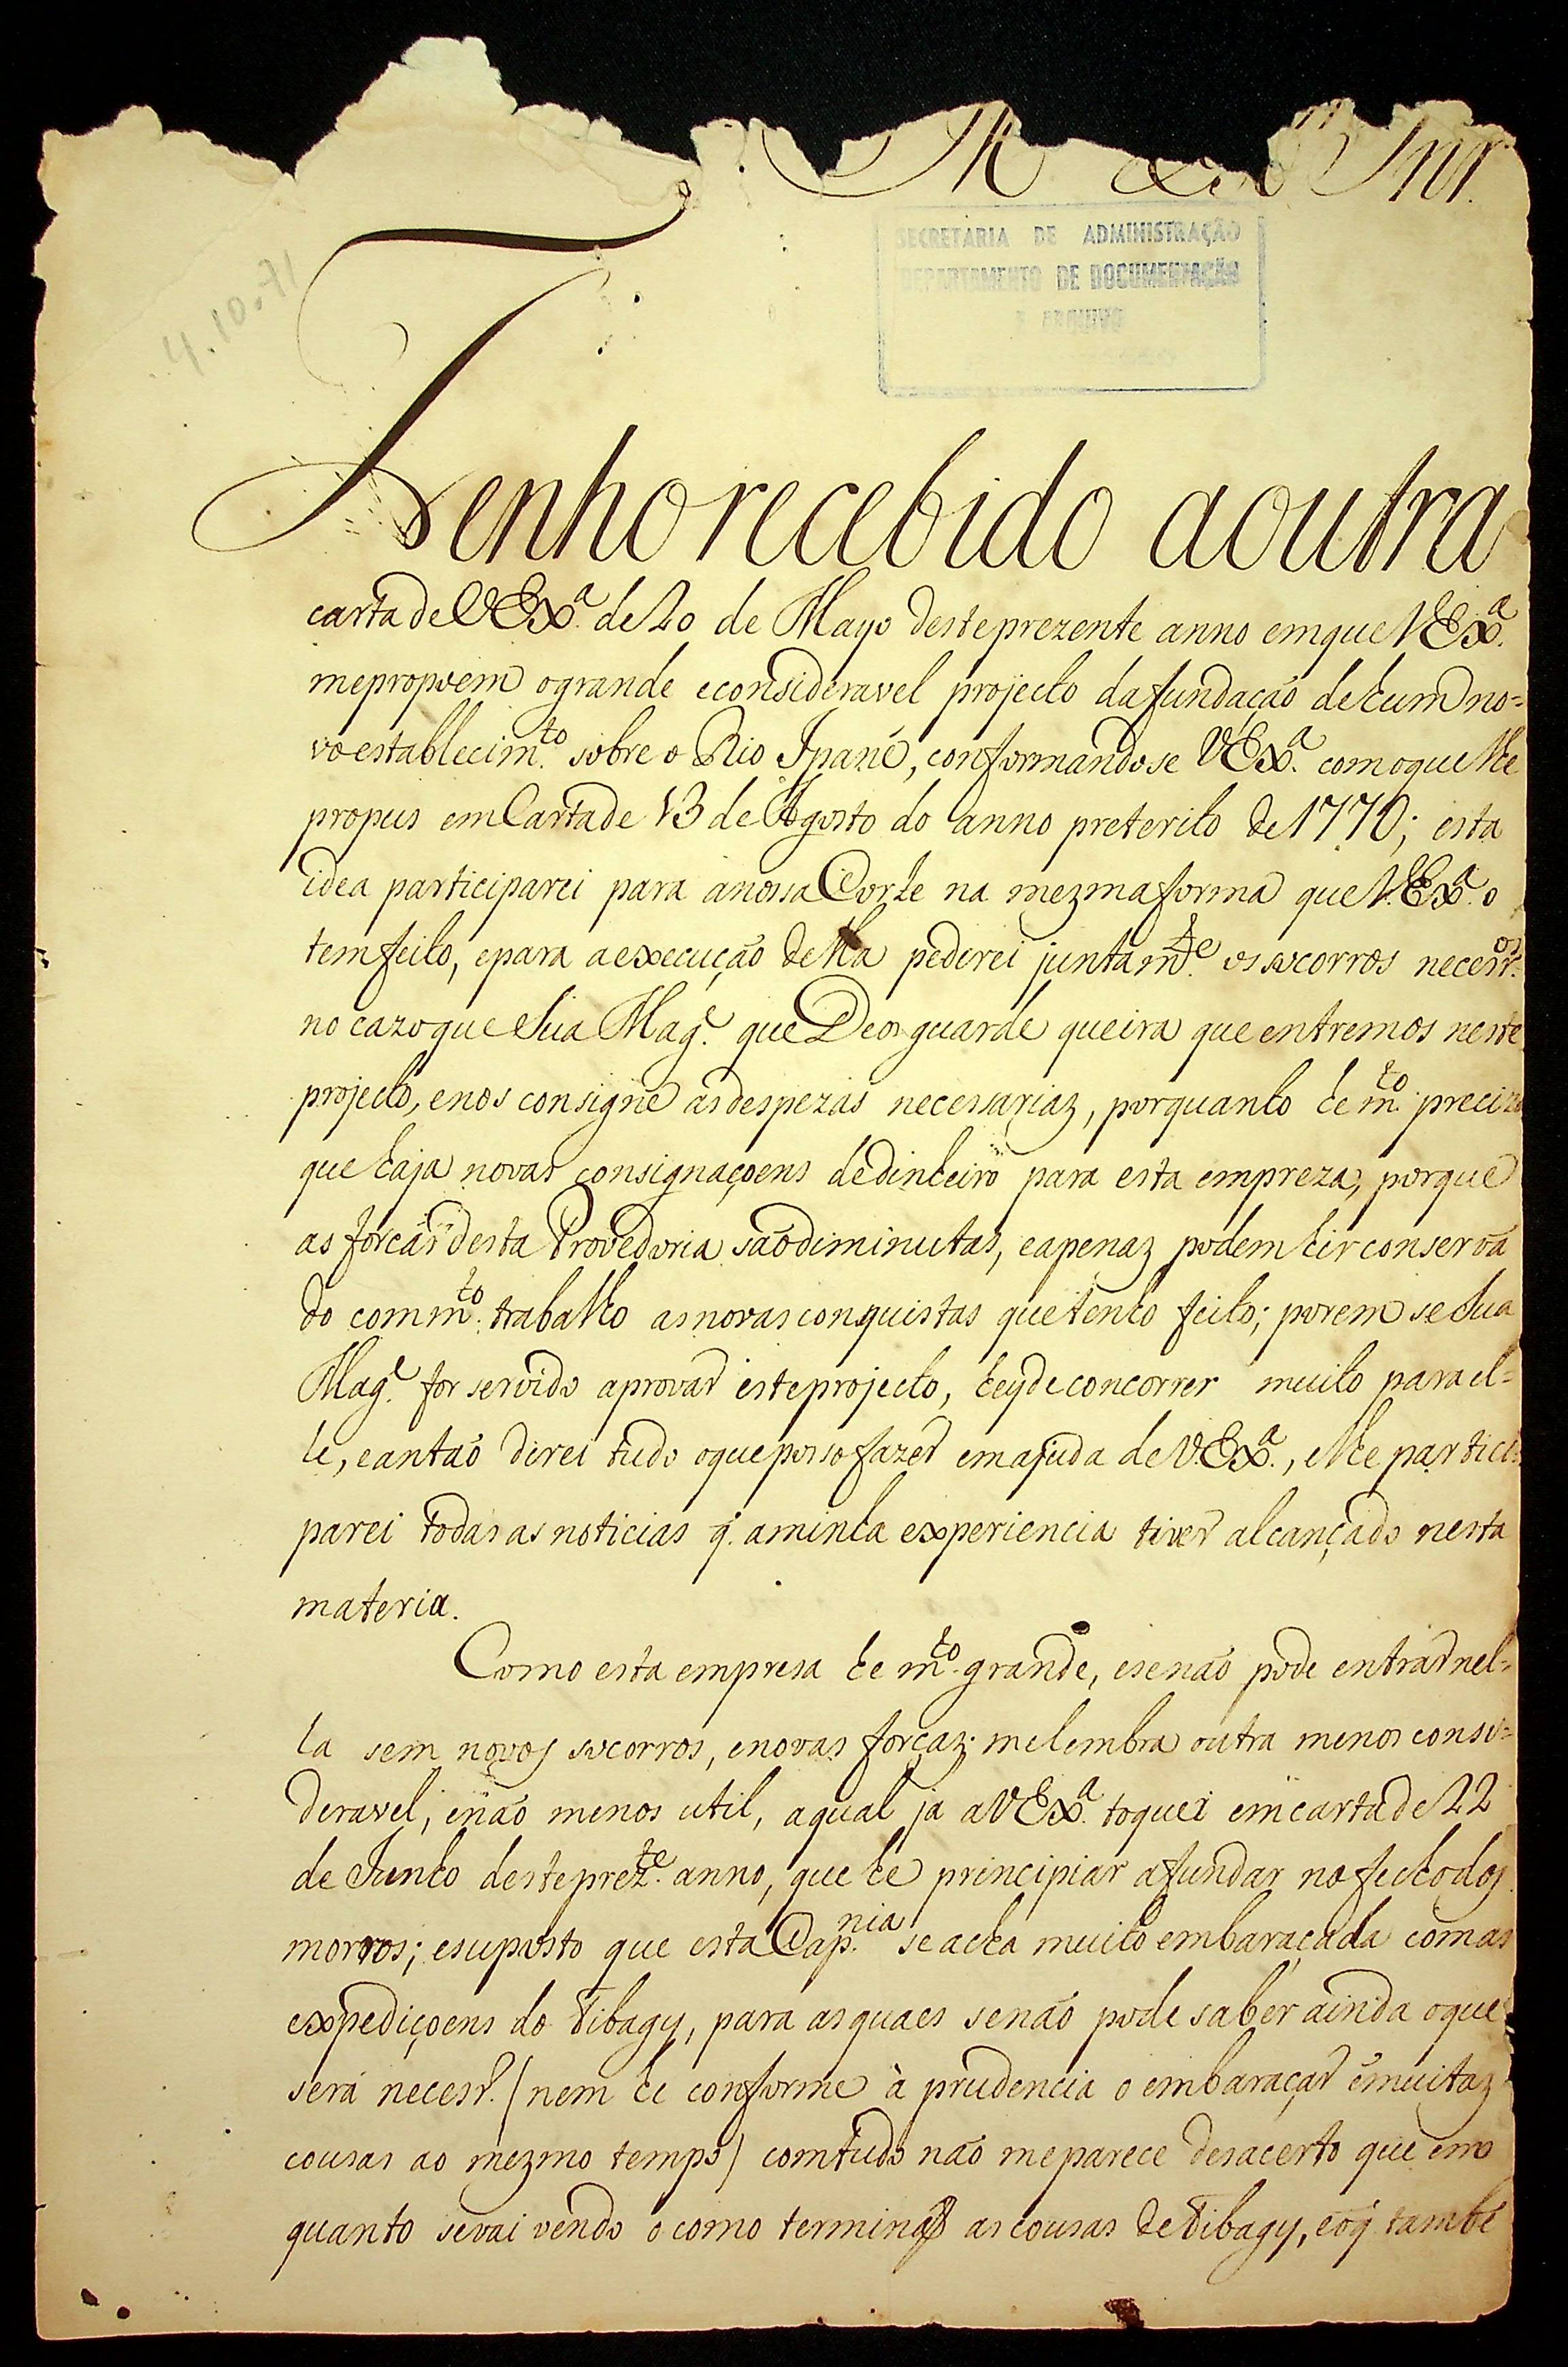 Snr.
4.10.71
SECRETARIA DE ADMINISTRAÇÃO
DEPARTAMENTO DE DOCUMENTAÇÃO
E ARQUIVO
Tenho recebido a outra
carta de V Exª. de 20 de Mayo deste prezente anno em que V Exª.
me propoem o grande e consideravel projecto da fundação de hum no=
vo establecimto. sobre o Rio Ipané, conformandose V Exª. com o que lhe
propus em Carta de 13 de Agosto do anno preterito de 1770; esta
idea participarei para a nossa Corte na mezma forma que V. Exª. o
tem feito, e para a execução della pederei juntamte. os socorros necessros.
no cazo que Sua Mage. que Deos guarde queira que entremos neste
projecto, e nos consigne as despezas necessariaz, porquanto he mto. precizo
que haja novas consignaçoens de dinheiro para esta empreza, porque
as forcas desta Provedoria são diminutas, e apenaz podem hir conserva
do com mto. trabalho as novas conquistas que tenho feito; porem se Sua
Mage. for servido aprovar este projecto, hey de concorrer muito para el=
le, e antão direi tudo o que posso fazer em ajuda de V. Exª., e lhe partici=
parei todas as noticias q. a minha experiencia tiver alcançado nesta
materia.
Como esta empresa he mto. grande, e se não pode entrar nel=
la sem novos socorros, e novas forçaz; me lembra outra menos consi=
deravel, e não menos util, a qual ja a V Exª. toquei em carta de 22
de Junho deste prezte. anno, que he principiar a fundar no fecho dos
morros; e suposto que esta Capnia. se acha muito embaraçada com as
expediçoens do Tibagy, para as quaes se não pode saber ainda o que
será necessrº. (nem he conforme à prudencia o embaraçar ẽ muitaz
cousas ao mezmo tempo) comtudo não me parece desacerto que em
quanto se vai vendo o como terminaõ as cousas de Tibagy, e o q̃ tambẽ